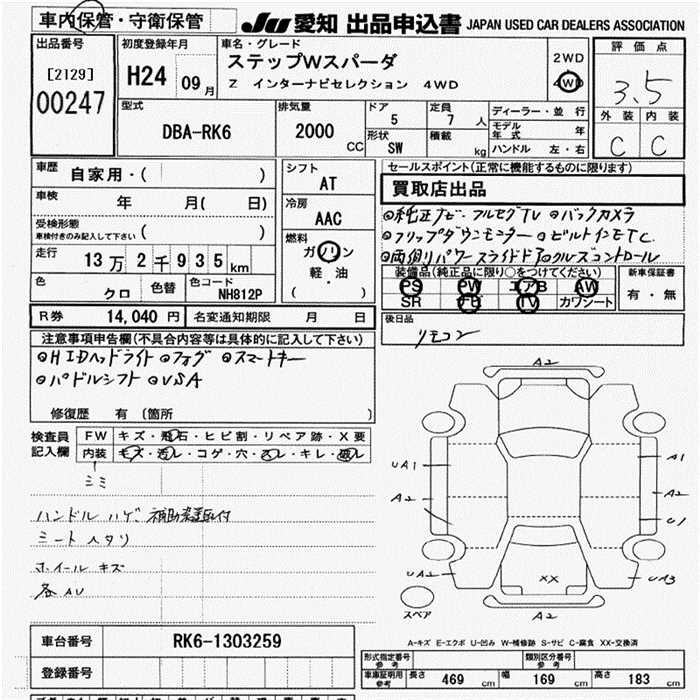 車内保管・守衛保管
JU 愛知 出品申込書 JAPAN USED CAR DEALERS ASSOCIATION
出品番号
[2129]
00247
初度登録年月
H24 09月
車名・グレード
ステップWスパーダ
Z インターナビセレクション 4WD
2WD
4WD
評価点
3.5
外装 内装
C C
型式
DBA-RK6
排気量
2000 CC
ドア
5
定員
7 人
形状
SW
積載
kg
ディーラー・並行
モデル年式 年
ハンドル 左・右
車歴
自家用・( )
車検
年 月( 日)
受検形態
車検付きのみ記入して下さい ( )
走行
13万2千935km
色
クロ
色替
色コード
NH812P
シフト
AT
冷房
AAC
燃料
ガソリン
軽・油
( )
セールスポイント(正常に機能するものに限ります)
買取店出品
◎純正ナビ・フルセグTV ◎バックカメラ
◎フリップダウンモニター ◎ビルトインETC
◎両側パワースライドドア◎クルーズコントロール
装備品(純正品に限り○をつけてください)
PS PW エアB AW
SR TV カワシート
新車保証書
有・無
R券 14,040円 名変通知期限 月 日
後日品
リモコン
注意事項申告欄(不具合内容等は具体的に記入して下さい)
◎HIDヘッドライト ◎フォグ ◎スマートキー
◎パドルシフト ◎VSA
修復歴 有 (箇所 )
検査員
記入欄
FW キズ・飛石・ヒビ割・リペア跡・X要
内装 キズ・汚レ・コゲ・穴・スレ・キレ・破レ
シミ
ハンドル ハゲ、補助
シート ヘタリ
ホイール キズ
各AU
A2
UA1
A2
UA2
A1
A2
U1
UA3
XX
A2
スペア
A-キズ E-エクボ U-凹み W-補修跡 S-サビ C-腐食 XX-交換済
車台番号 RK6-1303259
登録番号
形式指定番号
参考
類別区分番号
参考
車庫証明用
参考
長さ 469 cm 幅 169 cm 高さ 183 cm